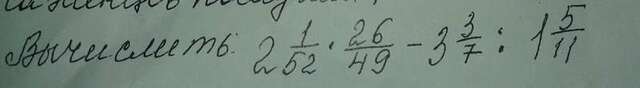 Вычислить: 2 1/52 · 26/49 - 3 3/7 : 1 5/11